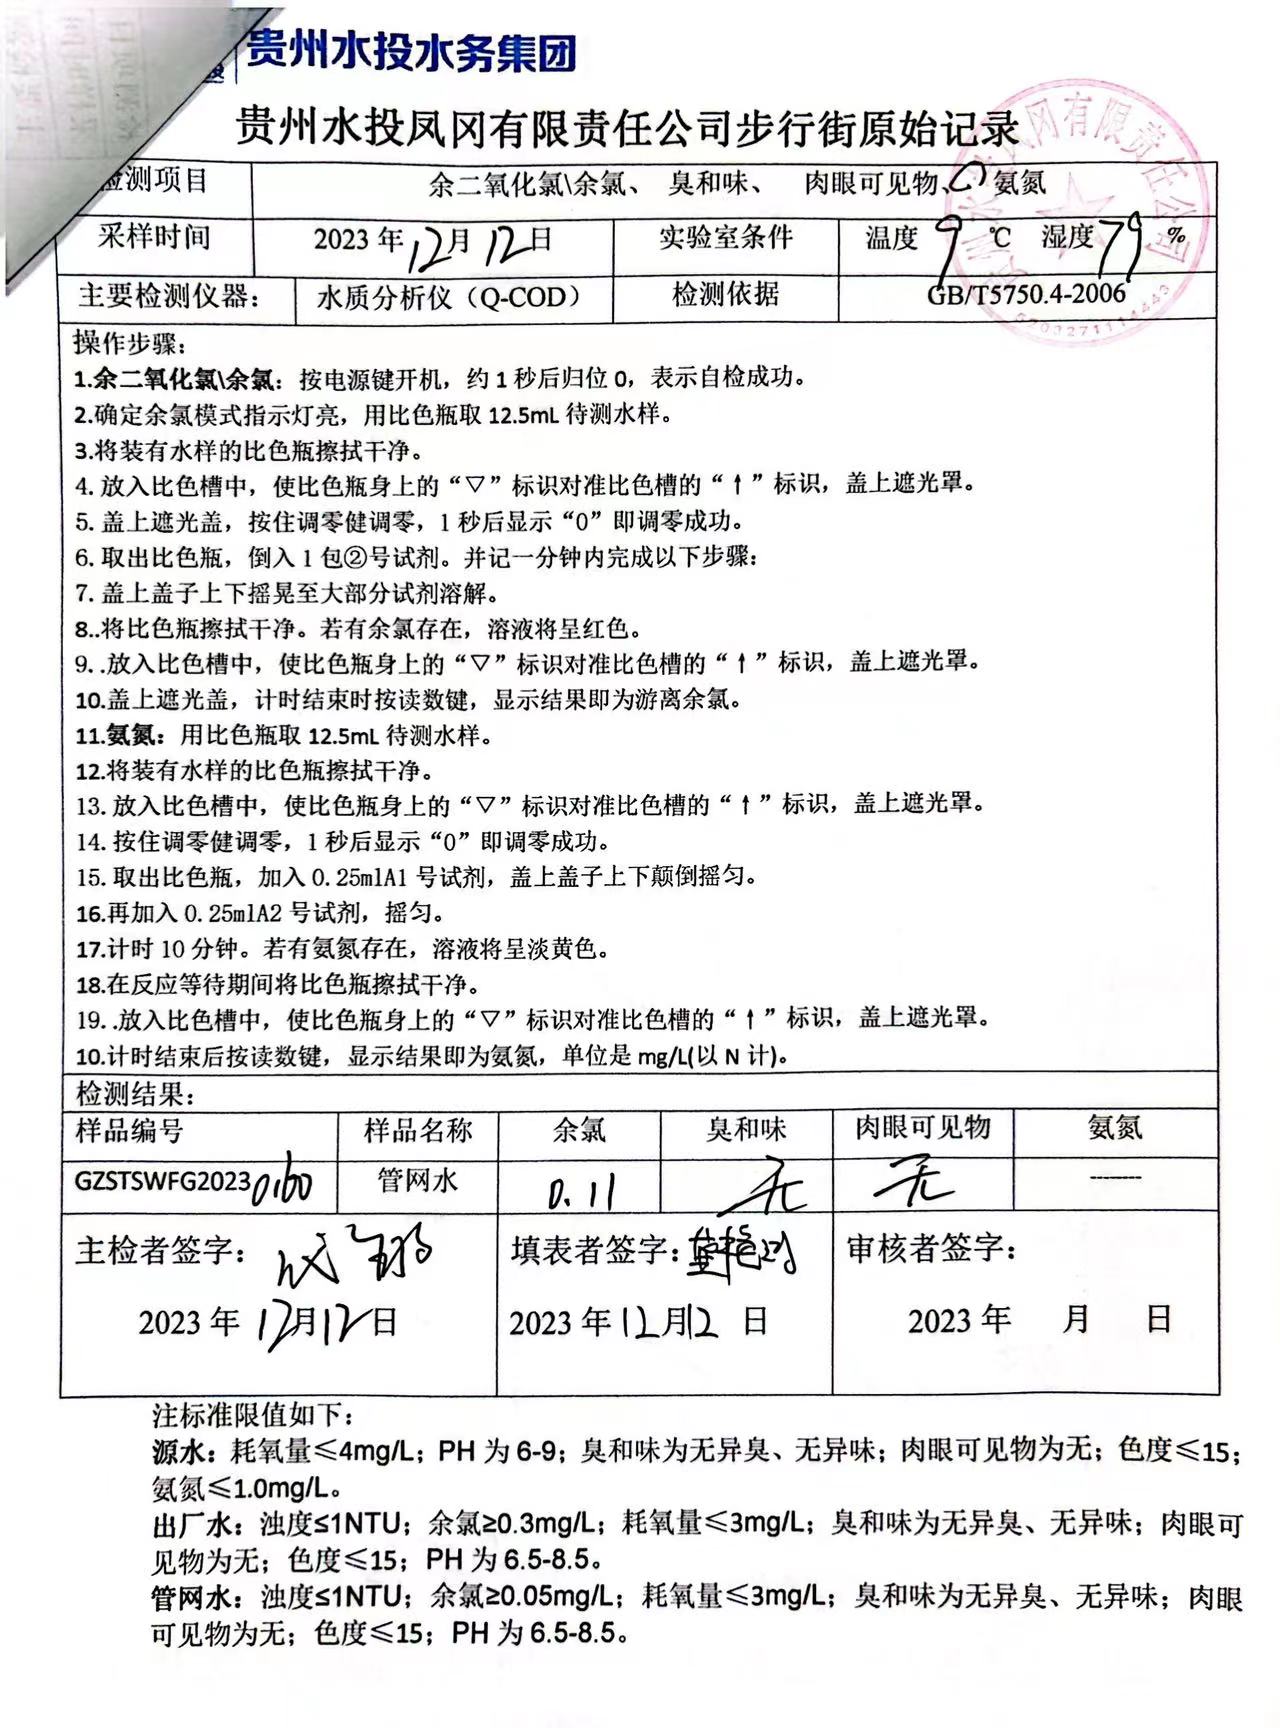 贵州水投水务集团
贵州水投凤冈有限责任公司步行街原始记录
检测项目 余二氧化氯\余氯、 臭和味、 肉眼可见物、 氨氮
采样时间 2023年12月12日 实验室条件 温度 9 ℃ 湿度 79 %
主要检测仪器： 水质分析仪（Q-COD） 检测依据 GB/T5750.4-2006
操作步骤：
1.余二氧化氯\余氯：按电源键开机，约1秒后归位0，表示自检成功。
2.确定余氯模式指示灯亮，用比色瓶取12.5mL待测水样。
3.将装有水样的比色瓶擦拭干净。
4. 放入比色槽中，使比色瓶身上的“▽”标识对准比色槽的“↑”标识，盖上遮光罩。
5. 盖上遮光盖，按住调零健调零，1秒后显示“0”即调零成功。
6. 取出比色瓶，倒入1包②号试剂。并记一分钟内完成以下步骤：
7. 盖上盖子上下摇晃至大部分试剂溶解。
8..将比色瓶擦拭干净。若有余氯存在，溶液将呈红色。
9. .放入比色槽中，使比色瓶身上的“▽”标识对准比色槽的“↑”标识，盖上遮光罩。
10.盖上遮光盖，计时结束时按读数键，显示结果即为游离余氯。
11.氨氮：用比色瓶取12.5mL待测水样。
12.将装有水样的比色瓶擦拭干净。
13. 放入比色槽中，使比色瓶身上的“▽”标识对准比色槽的“↑”标识，盖上遮光罩。
14. 按住调零健调零，1秒后显示“0”即调零成功。
15. 取出比色瓶，加入0.25mlA1号试剂，盖上盖子上下颠倒摇匀。
16.再加入0.25mlA2号试剂，摇匀。
17.计时10分钟。若有氨氮存在，溶液将呈淡黄色。
18.在反应等待期间将比色瓶擦拭干净。
19. .放入比色槽中，使比色瓶身上的“▽”标识对准比色槽的“↑”标识，盖上遮光罩。
10.计时结束后按读数键，显示结果即为氨氮，单位是mg/L(以N计)。
检测结果：
样品编号 样品名称 余氯 臭和味 肉眼可见物 氨氮
GZSTSWFG2023 管网水 0.11 无 无 -------
主检者签字： 填表者签字： 审核者签字：
2023年12月12日 2023年12月12日 2023年 月 日
注标准限值如下：
源水：耗氧量≤4mg/L；PH为6-9；臭和味为无异臭、无异味；肉眼可见物为无；色度≤15；
氨氮≤1.0mg/L。
出厂水：浊度≤1NTU；余氯≥0.3mg/L；耗氧量≤3mg/L；臭和味为无异臭、无异味；肉眼可
见物为无；色度≤15；PH为6.5-8.5。
管网水：浊度≤1NTU；余氯≥0.05mg/L；耗氧量≤3mg/L；臭和味为无异臭、无异味；肉眼
可见物为无；色度≤15；PH为6.5-8.5。